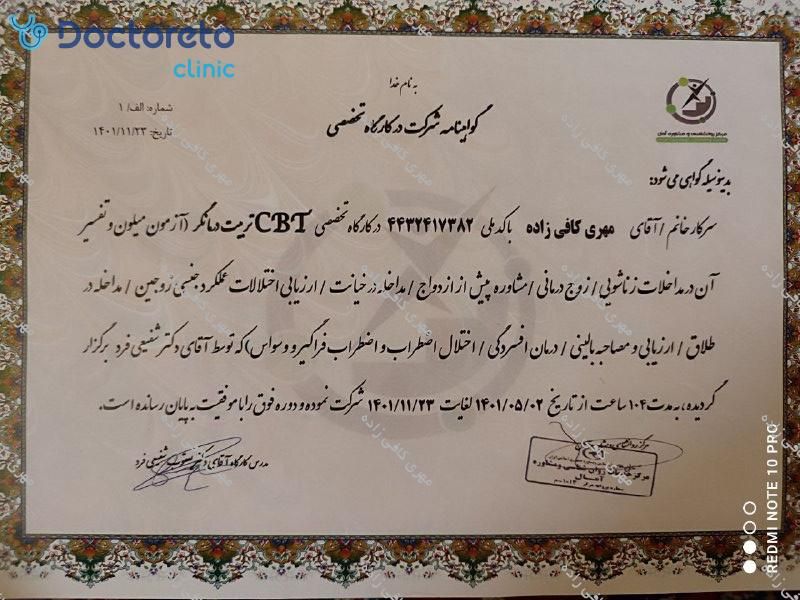 Doctoreto
clinic
به نام خدا
گواهینامه شرکت در کارگاه تخصصی
شماره: الف/ ۱
تاریخ: ۱۴۰۱/۱۱/۲۳
مرکز روانشناسی و مشاوره آمال
بدینوسیله گواهی می شود:
سرکار خانم / آقای مهری کافی زاده با کد ملی ۴۴۳۲۴۱۷۳۸۲ در کارگاه تخصصی CBT تربیت درمانگر (آزمون میلون و تفسیر
آن در مداخلات زناشویی / زوج درمانی / مشاوره پیش از ازدواج / مداخله در خیانت / ارزیابی اختلالات عملکرد جنسی زوجین / مداخله در
طلاق / ارزیابی و مصاحبه بالینی / درمان افسردگی / اختلال اضطراب و اضطراب فراگیر و وسواس) که توسط آقای دکتر شفیعی فرد برگزار
گردیده، به مدت ۱۰۴ ساعت از تاریخ ۱۴۰۱/۰۵/۰۲ لغایت ۱۴۰۱/۱۱/۲۳ شرکت نموده و دوره فوق را با موفقیت به پایان رسانده است.
مدرس کارگاه: آقای دکتر یعقوب شفیعی فرد
مرکز روانشناسی و مشاوره
مرکز خدمات روان شناسی و مشاوره
آمال
مهری کافی زاده
REDMI NOTE 10 PRO